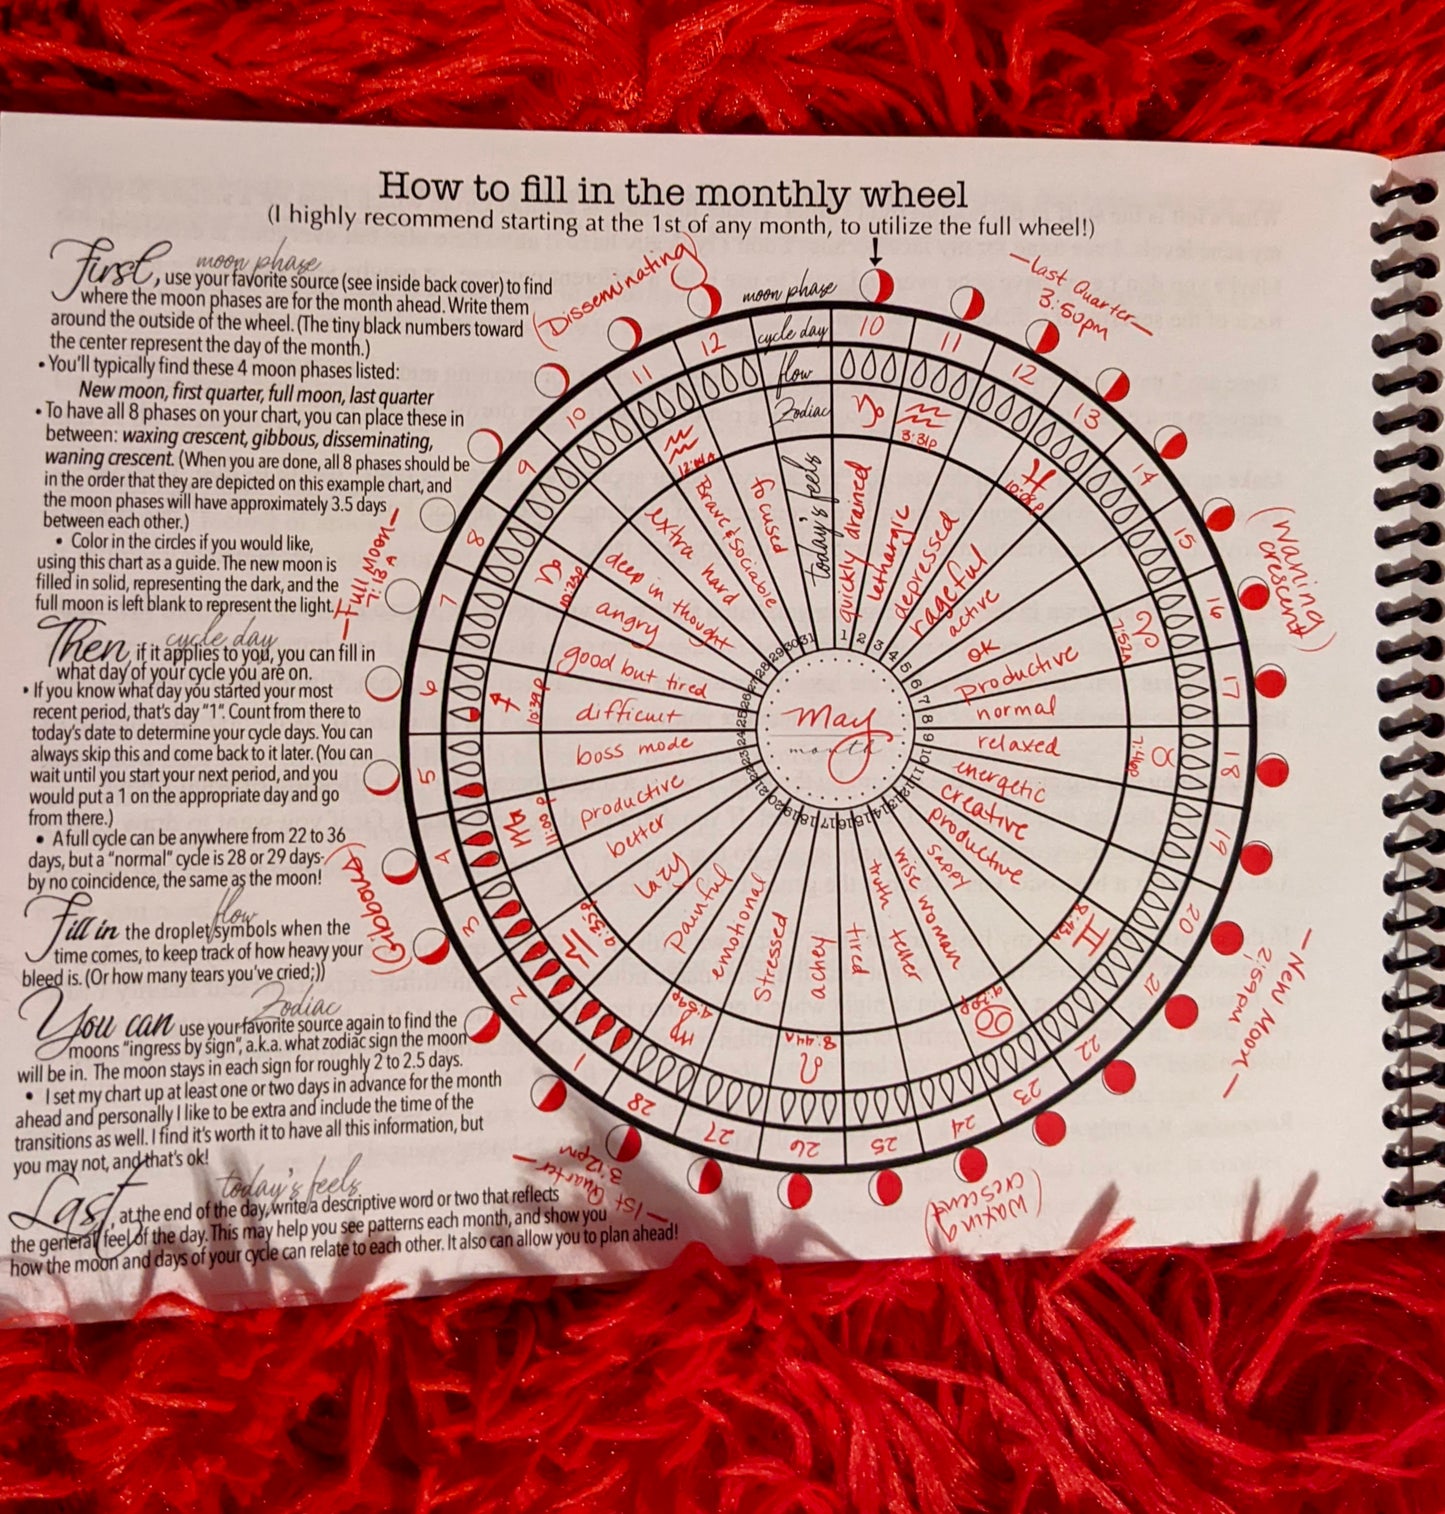 How to fill in the monthly wheel
(I highly recommend starting at the 1st of any month, to utilize the full wheel!)
moon phase
First, use your favorite source (see inside back cover) to find
where the moon phases are for the month ahead. Write them
around the outside of the wheel. (The tiny black numbers toward
the center represent the day of the month.)
• You'll typically find these 4 moon phases listed:
New moon, first quarter, full moon, last quarter
• To have all 8 phases on your chart, you can place these in
between: waxing crescent, gibbous, disseminating,
waning crescent. (When you are done, all 8 phases should be
in the order that they are depicted on this example chart, and
the moon phases will have approximately 3.5 days
between each other.)
• Color in the circles if you would like,
using this chart as a guide. The new moon is
filled in solid, representing the dark, and the
full moon is left blank to represent the light.
cycle day
Then, if it applies to you, you can fill in
what day of your cycle you are on.
• If you know what day you started your most
recent period, that's day "1". Count from there to
today's date to determine your cycle days. You can
always skip this and come back to it later. (You can
wait until you start your next period, and you
would put a 1 on the appropriate day and go
from there.)
• A full cycle can be anywhere from 22 to 36
days, but a "normal" cycle is 28 or 29 days-
by no coincidence, the same as the moon!
flow
Fill in the droplet symbols when the
time comes, to keep track of how heavy your
bleed is. (Or how many tears you've cried;))
Zodiac
You can use your favorite source again to find the
moons "ingress by sign", a.k.a. what zodiac sign the moon
will be in. The moon stays in each sign for roughly 2 to 2.5 days.
• I set my chart up at least one or two days in advance for the month
ahead and personally I like to be extra and include the time of the
transitions as well. I find it's worth it to have all this information, but
you may not, and that's ok!
today's feels
Last, at the end of the day, write a descriptive word or two that reflects
the general feel of the day. This may help you see patterns each month, and show you
how the moon and days of your cycle can relate to each other. It also can allow you to plan ahead!
moon phase
cycle day
flow
Zodiac
today's feels
- last Quarter -
3:50pm
(Waning
crescent)
- New Moon -
2:59pm
(Waxing
crescent)
- 1st Quarter -
3:12pm
(Gibbous)
- Full Moon -
7:13A
(Disseminating)
10
11
12
13
14
15
16
17
18
19
20
21
22
23
24
25
26
27
28
1
2
3
4
5
6
7
8
9
10
11
12
♑
♒
3:31p
♓
10:08p
♈
7:52A
♉
♊
♋
♌
8:44A
♍
4:59p
♎
♏
♐
10:39p
♑
♒
quickly drained
lethargic
depressed
rageful
active
ok
productive
normal
relaxed
energetic
creative
productive
sappy
wise woman
truth teller
tired
achey
stressed
emotional
painful
lazy
better
productive
boss mode
difficult
good but tired
angry
deep in thought
extra hard
Brave & sociable
focused
1 2 3 4 5 6 7 8 9 10 11 12 13 14 15 16 17 18 19 20 21 22 23 24 25 26 27 28 29 30 31
May
month